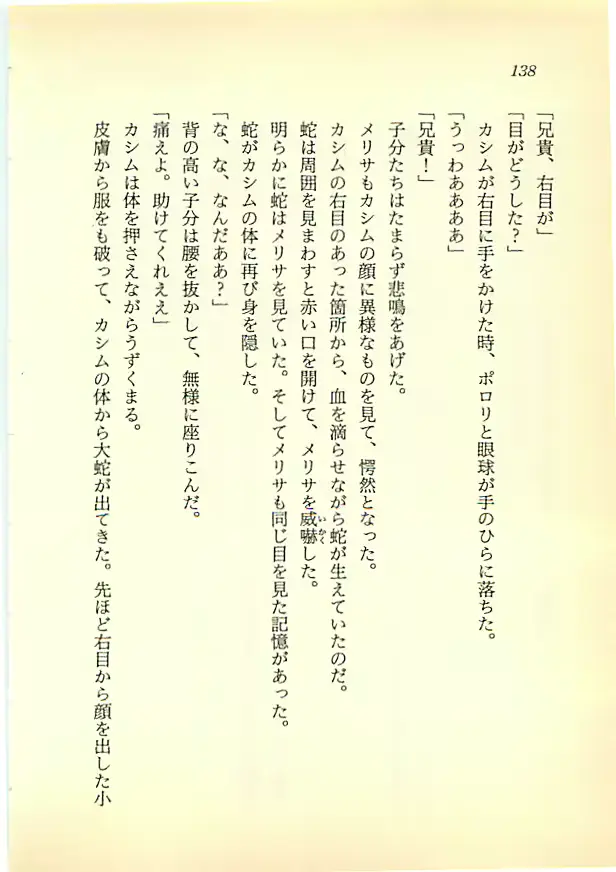 138
「兄貴、右目が」
「目がどうした?」
カシムが右目に手をかけた時、ポロリと眼球が手のひらに落ちた。
「うっわああああ」
「兄貴!」
子分たちはたまらず悲鳴をあげた。
メリサもカシムの顔に異様なものを見て、愕然となった。
カシムの右目のあった箇所から、血を滴らせながら蛇が生えていたのだ。
蛇は周囲を見まわすと赤い口を開けて、メリサを威嚇した。
明らかに蛇はメリサを見ていた。そしてメリサも同じ目を見た記憶があった。
蛇がカシムの体に再び身を隠した。
「な、な、なんだああ?」
背の高い子分は腰を抜かして、無様に座りこんだ。
「痛えよ。助けてくれええ」
カシムは体を押さえながらうずくまる。
皮膚から服をも破って、カシムの体から大蛇が出てきた。先ほど右目から顔を出した小